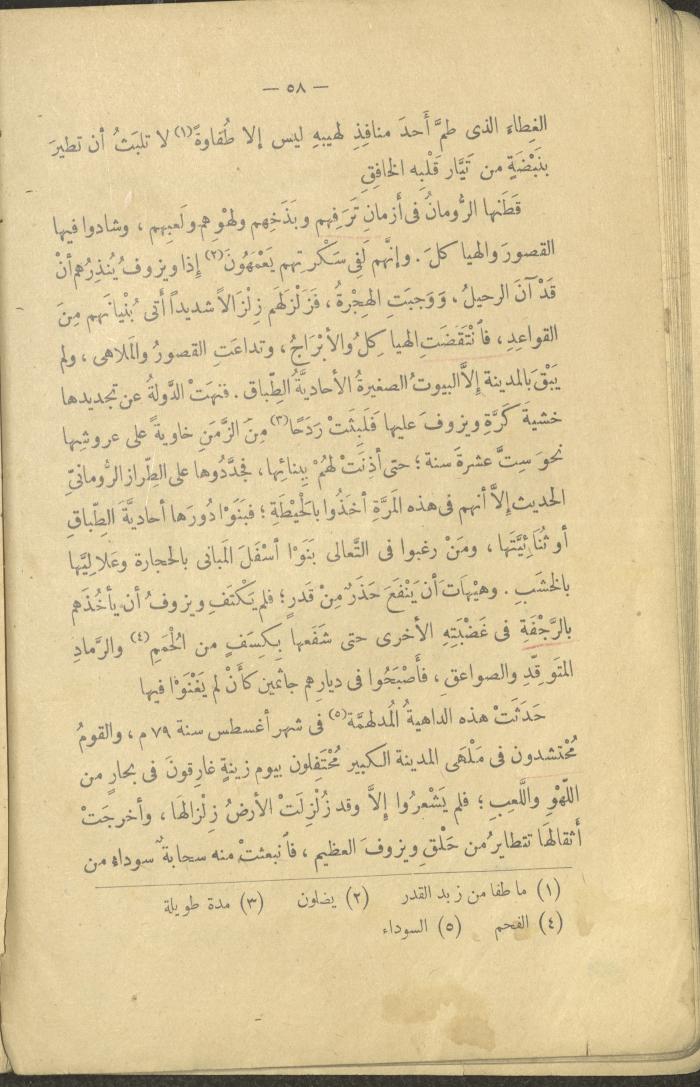 — ٥٨ —
الغِطاء الذى طمَّ أَحدَ منافِذِ لهيبهِ ليس إلا طُفاوةً (١) لا تلبَثُ أن تطيرَ
بنَبْضَةٍ من تَيَّار قَلْبِه الخافِقِ
قَطَنها الرُّومانُ فى أزمانِ تَرَفِهم وبَذَخِهم ولهْوِهم ولَعبِهم ، وشادوا فيها
القصورَ والهياكلَ . وإنَّهم لَفِى سَكْرتِهم يَعْمَهُونَ (٢) إذا ويزوفُ يُنذِرُهم أنْ
قَدْ آنَ الرحيلُ ، وَوَجبَتِ الهِجْرةُ ، فَزَلْزلَهم زِلْزَالاً شديداً أتى بُنْيانَهم مِنَ
القواعِدِ ، فانْتَقَضَتِ الهياكِلُ والأبْرَاجُ ، وتداعَتِ القصورُ والمَلاهى ، ولم
يَبْقَ بالمدينة إلاَّ البيوتُ الصغيرةُ الأحاديَّةُ الطِّباقِ . فنهَتْ الدَّولةُ عن تجديدها
خشيةَ كَرَّةِ ويزوفَ عليها فَلبِثَتْ رَدَحًا (٣) مِنَ الزَّمَنِ خاويةً على عروشِها
نحوَ سِتَّ عشرةَ سنة ؛ حتى أذِنَتْ لهُمْ بِبنائِها ، فجدَّدُوها على الطِّراز الرُّومانىِّ
الحديث إلاَّ أنهم فى هذه المَرَّةِ أخَذُوا بالحْيطَةِ ؛ فبَنَوْا دُورَها أحاديَّةَ الطِّباقِ
أو ثُنَائِيَّتَها ، ومَنْ رغبوا فى التَّعالى بَنَوْا أسْفَلَ المَبانى بالحجارة وعَلالِيَّها
بالخشَبِ . وهيْهَات أن يَنْفَعَ حَذَرٌ مِنْ قَدرٍ ؛ فلم يَكْتَفِ ويزوفُ أن يأخُذَهم
بالرَّجْفَةِ فى غَضْبَتِهِ الأخرى حتى شفَعها بِكِسَفٍ من الْحُمَمِ (٤) والرَّمادِ
المتَوقِّدِ والصواعقِ ، فأصْبَحُوا فى ديارِهم جاثمين كأَنْ لم يَغْنَوْا فيها
حَدَثَتْ هذه الداهيةُ الْمُدلهمَّة (٥) فى شهر أغسطس سنة ٧٩ م ، والقومُ
مُحْتشدون فى مَلْهَى المدينة الكبير مُحْتَفِلون بيوم زينةٍ غارقونَ فى بحارٍ من
اللّهْوِ واللَّعِبِ ؛ فلم يَشْعرُوا إلاَّ وقد زُلْزِلَتْ الأرضُ زِلْزالهَا ، وأخرجَتْ
أثقالهَا تتطايرُ من حَلْقِ ويزوفَ العظيم ، فانبعثتْ منه سحابةٌ سوداء من
(١) ما طفا من زبد القدر (٢) يضلون (٣) مدة طويلة
(٤) الفحم (٥) السوداء